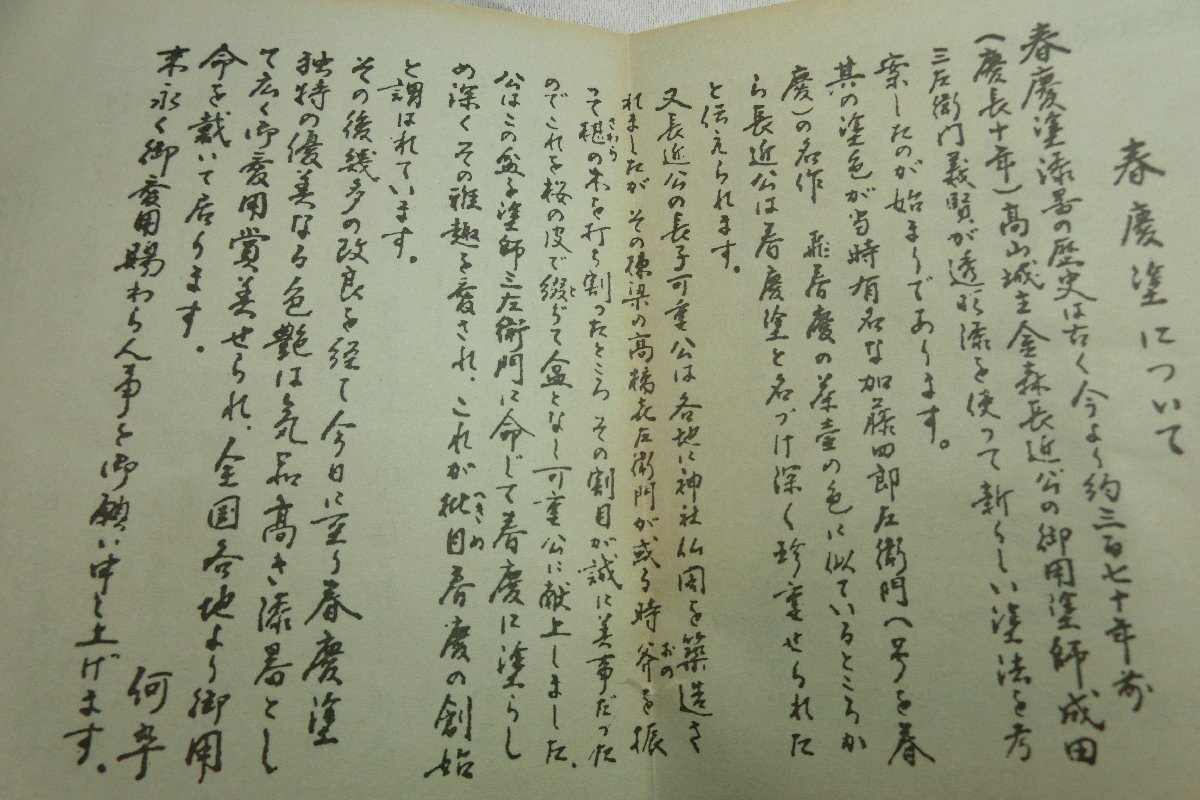 春慶塗について
春慶塗漆器の歴史は古く今より約三百七十年前
(慶長十年)高山城主金森長近公の御用塗師成田
三左衛門義賢が透き漆を使って新らしい塗法を考
案したのが始まりであります。
其の塗色が当時有名な加藤四郎左衛門(号を春
慶)の名作 飛春慶の茶壷の色に似ているところか
ら長近公は春慶塗と名づけ深く珍重せられた
と伝えられます。
又長近公の長子可重公は各地に神社仏閣を築造さ
れましたが その棟梁の高橋喜左衛門が或る時斧を振
おの
って椹の木を打ち割ったところ その割目が誠に美事だった
さわら
のでこれを桜の皮で綴ぢて盆となし可重公に献上しました、
と
公はこの盆を塗師三左衛門に命じて春慶に塗らし
め深くその雅趣を愛され、これが批目春慶の創始
へぎめ
と謂はれています。
その後幾多の改良を経て今日に至り春慶塗
独特の優美なる色艶は気品高き漆器とし
て広く御愛用賞美せられ、全国各地より御用
命を戴いて居ります。
何卒
末永く御愛用賜わらん事を御願い申し上げます。